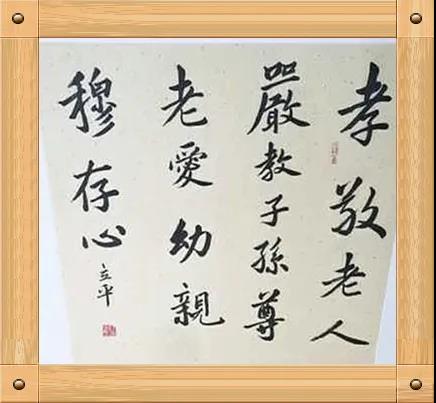 孝敬老人
嚴教子孫尊
老愛幼親
穆存心
立平